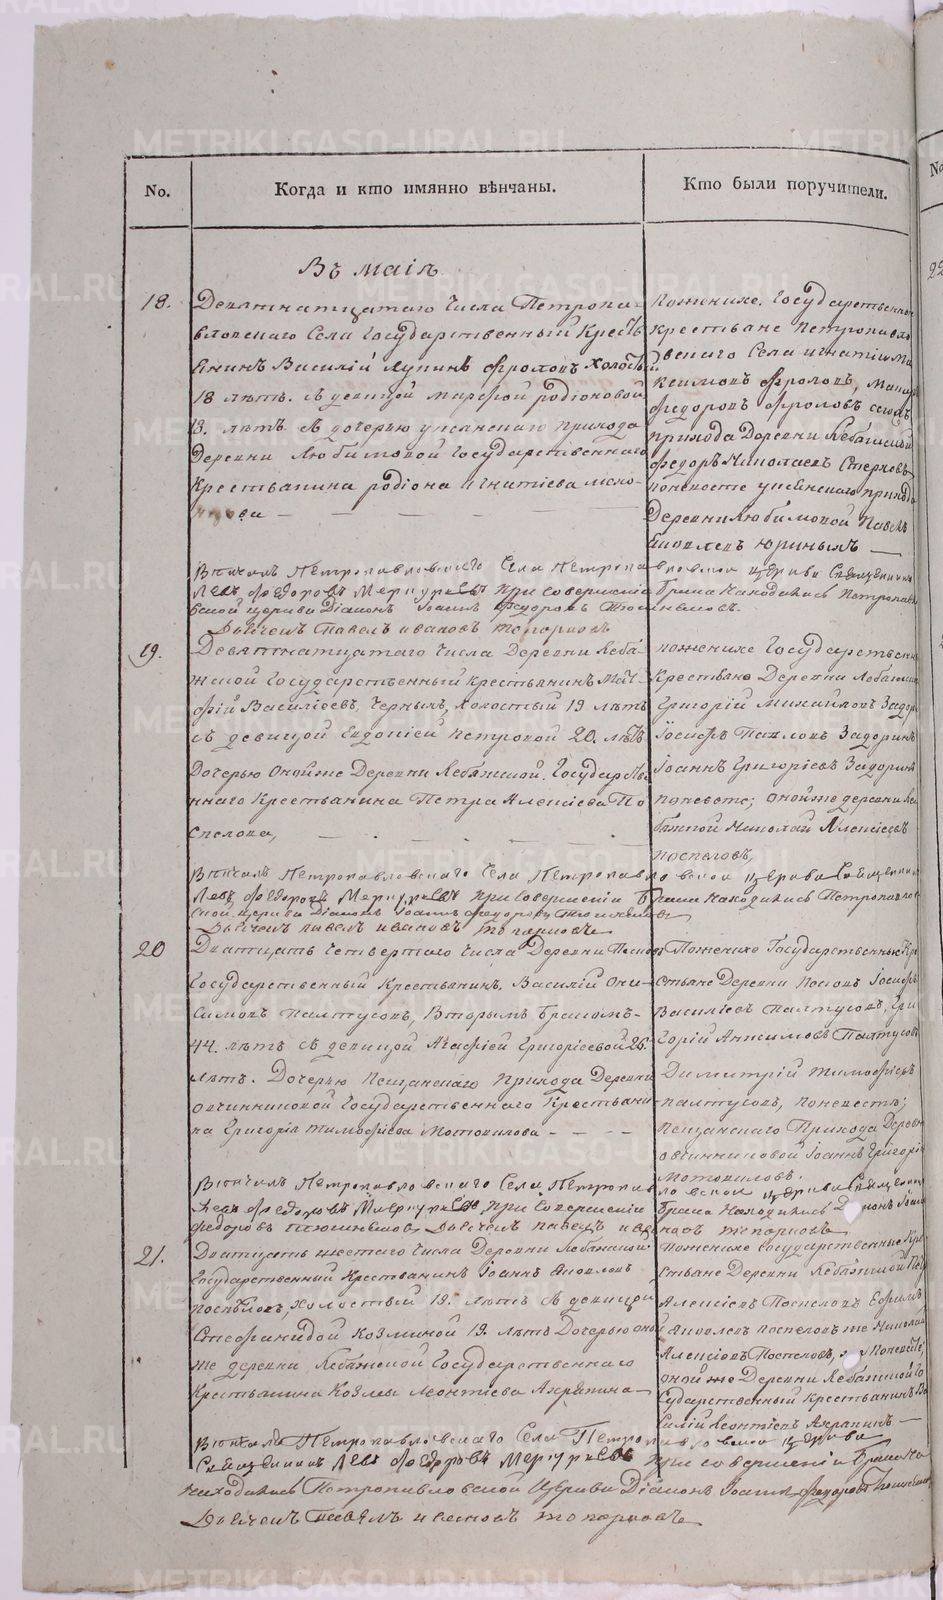 No.
Когда и кто имянно вѣнчаны.
Кто были поручители.
Въ маіѣ
18.
Девятнатцатаго числа Петропа-
вловскаго Села Государственный Кресть
янинъ Василій Лупинъ Фроловъ холостый
18 лѣтъ. съ девицой Марфой Родіоновой
18. лѣтъ съ дочерью
Деревни Любимовой Государственнаго
Крестьянина Родіона Игнатіева
По женихе. Государственные
крестьяне Петропавло
вскаго Села Игнатій Ма
ксимовъ Фроловъ,
Федоровъ Фроловъ сего
прихода Деревни Лебяжской
Федоръ Николаевъ
по невесте прихода
Деревни Любимовой Павелъ
Яковлевъ Юриныхъ
Венчалъ Петропавловскаго Села Петропавловской церкви Священникъ
Левъ Федоровъ Меркурьевъ при совершеніи Брака находились Петропавло
вской церкви Діаконъ Іоаннъ Федоровъ
Дьячекъ Павелъ Ивановъ Топорковъ
19.
Девятнатцатаго числа Деревни Лебя-
жской Государственный Крестьянинъ Мат-
фій Василіевъ Черныхъ, холостый 19 лѣтъ
съ девицой Евдокіей Петровой 20. лѣтъ
Дочерью Онойже Деревни Лебяжской. Государстве
ннаго Крестьянина Петра Алексіева По
спелова,
по женихе Государственные
Крестьяне Деревни Лебяжской
Григорій Михайловъ Задорин
Іосифъ Павловъ Задоринъ
Іоаннъ Григоріевъ Задоринъ
по невесте; онойже деревни Ле
бяжской Николай Алексіевъ
Поспеловъ,
Венчалъ Петропавловскаго Села Петропавловской церкви Священникъ
Левъ Федоровъ Меркурьевъ при совершеніи Брака находились Петропавлов
ской церкви Діаконъ Іоаннъ Федоровъ
Дьячекъ Павелъ Ивановъ Топорковъ
20
Дватцать четвертаго числа Деревни
Государственный Крестьянинъ. Василій Они-
симовъ Палтусовъ, Вторымъ бракомъ-
44. лѣтъ съ девицой Агафіей Григоріевой 26.
лѣтъ. Дочерью Песчанскаго Прихода Деревни
Овчинниковой Государственнаго Крестьяни
на Григорія Тимофіева Мотовилова
По женихе Государственные Кре
стьяне Деревни Іосифъ
Василіевъ Палтусовъ, Гри
горій Анисимовъ Палтусовъ
Димитрій Тимофіевъ
Палтусовъ, по невесте;
Песчанскаго Прихода Деревни
Овчинниковой Іоаннъ Григорія
Мотовиловъ.
Венчалъ Петропавловскаго Села Петропавловской церкви Священникъ
Левъ Федоровъ Меркурьевъ при совершеніи Брака находились Діаконъ Іоаннъ
Федоровъ Дьячекъ Павелъ Ивановъ Топорковъ
21.
Дватцать шестаго числа Деревни Лебяжской
Государственный Крестьянинъ Іоаннъ Яковлевъ
Поспѣловъ, холостый 19. лѣтъ съ девицей
Стефанидой Козминой 19. лѣтъ Дочерью оной
же деревни Лебяжской Государственнаго
Крестьянина Козмы Леонтіева
По женихе Государственные Кре
стьяне Деревни Лебяжской
Алексіевъ Поспеловъ Ефимъ
Яковлевъ Поспеловъ же Николай
Алексіевъ Поспеловъ, по невесте;
оной же Деревни Лебяжской Го
сударственный Крестьянинъ Ва
силій Леонтіевъ
Венчалъ Петропавловскаго Села Петропавловской церкви
Священникъ Левъ Федоровъ Меркурьевъ при совершеніи Брака
находились Петропавловской Церкви Діаконъ Іоаннъ Федоровъ
Дьячекъ Павелъ Ивановъ Топорковъ